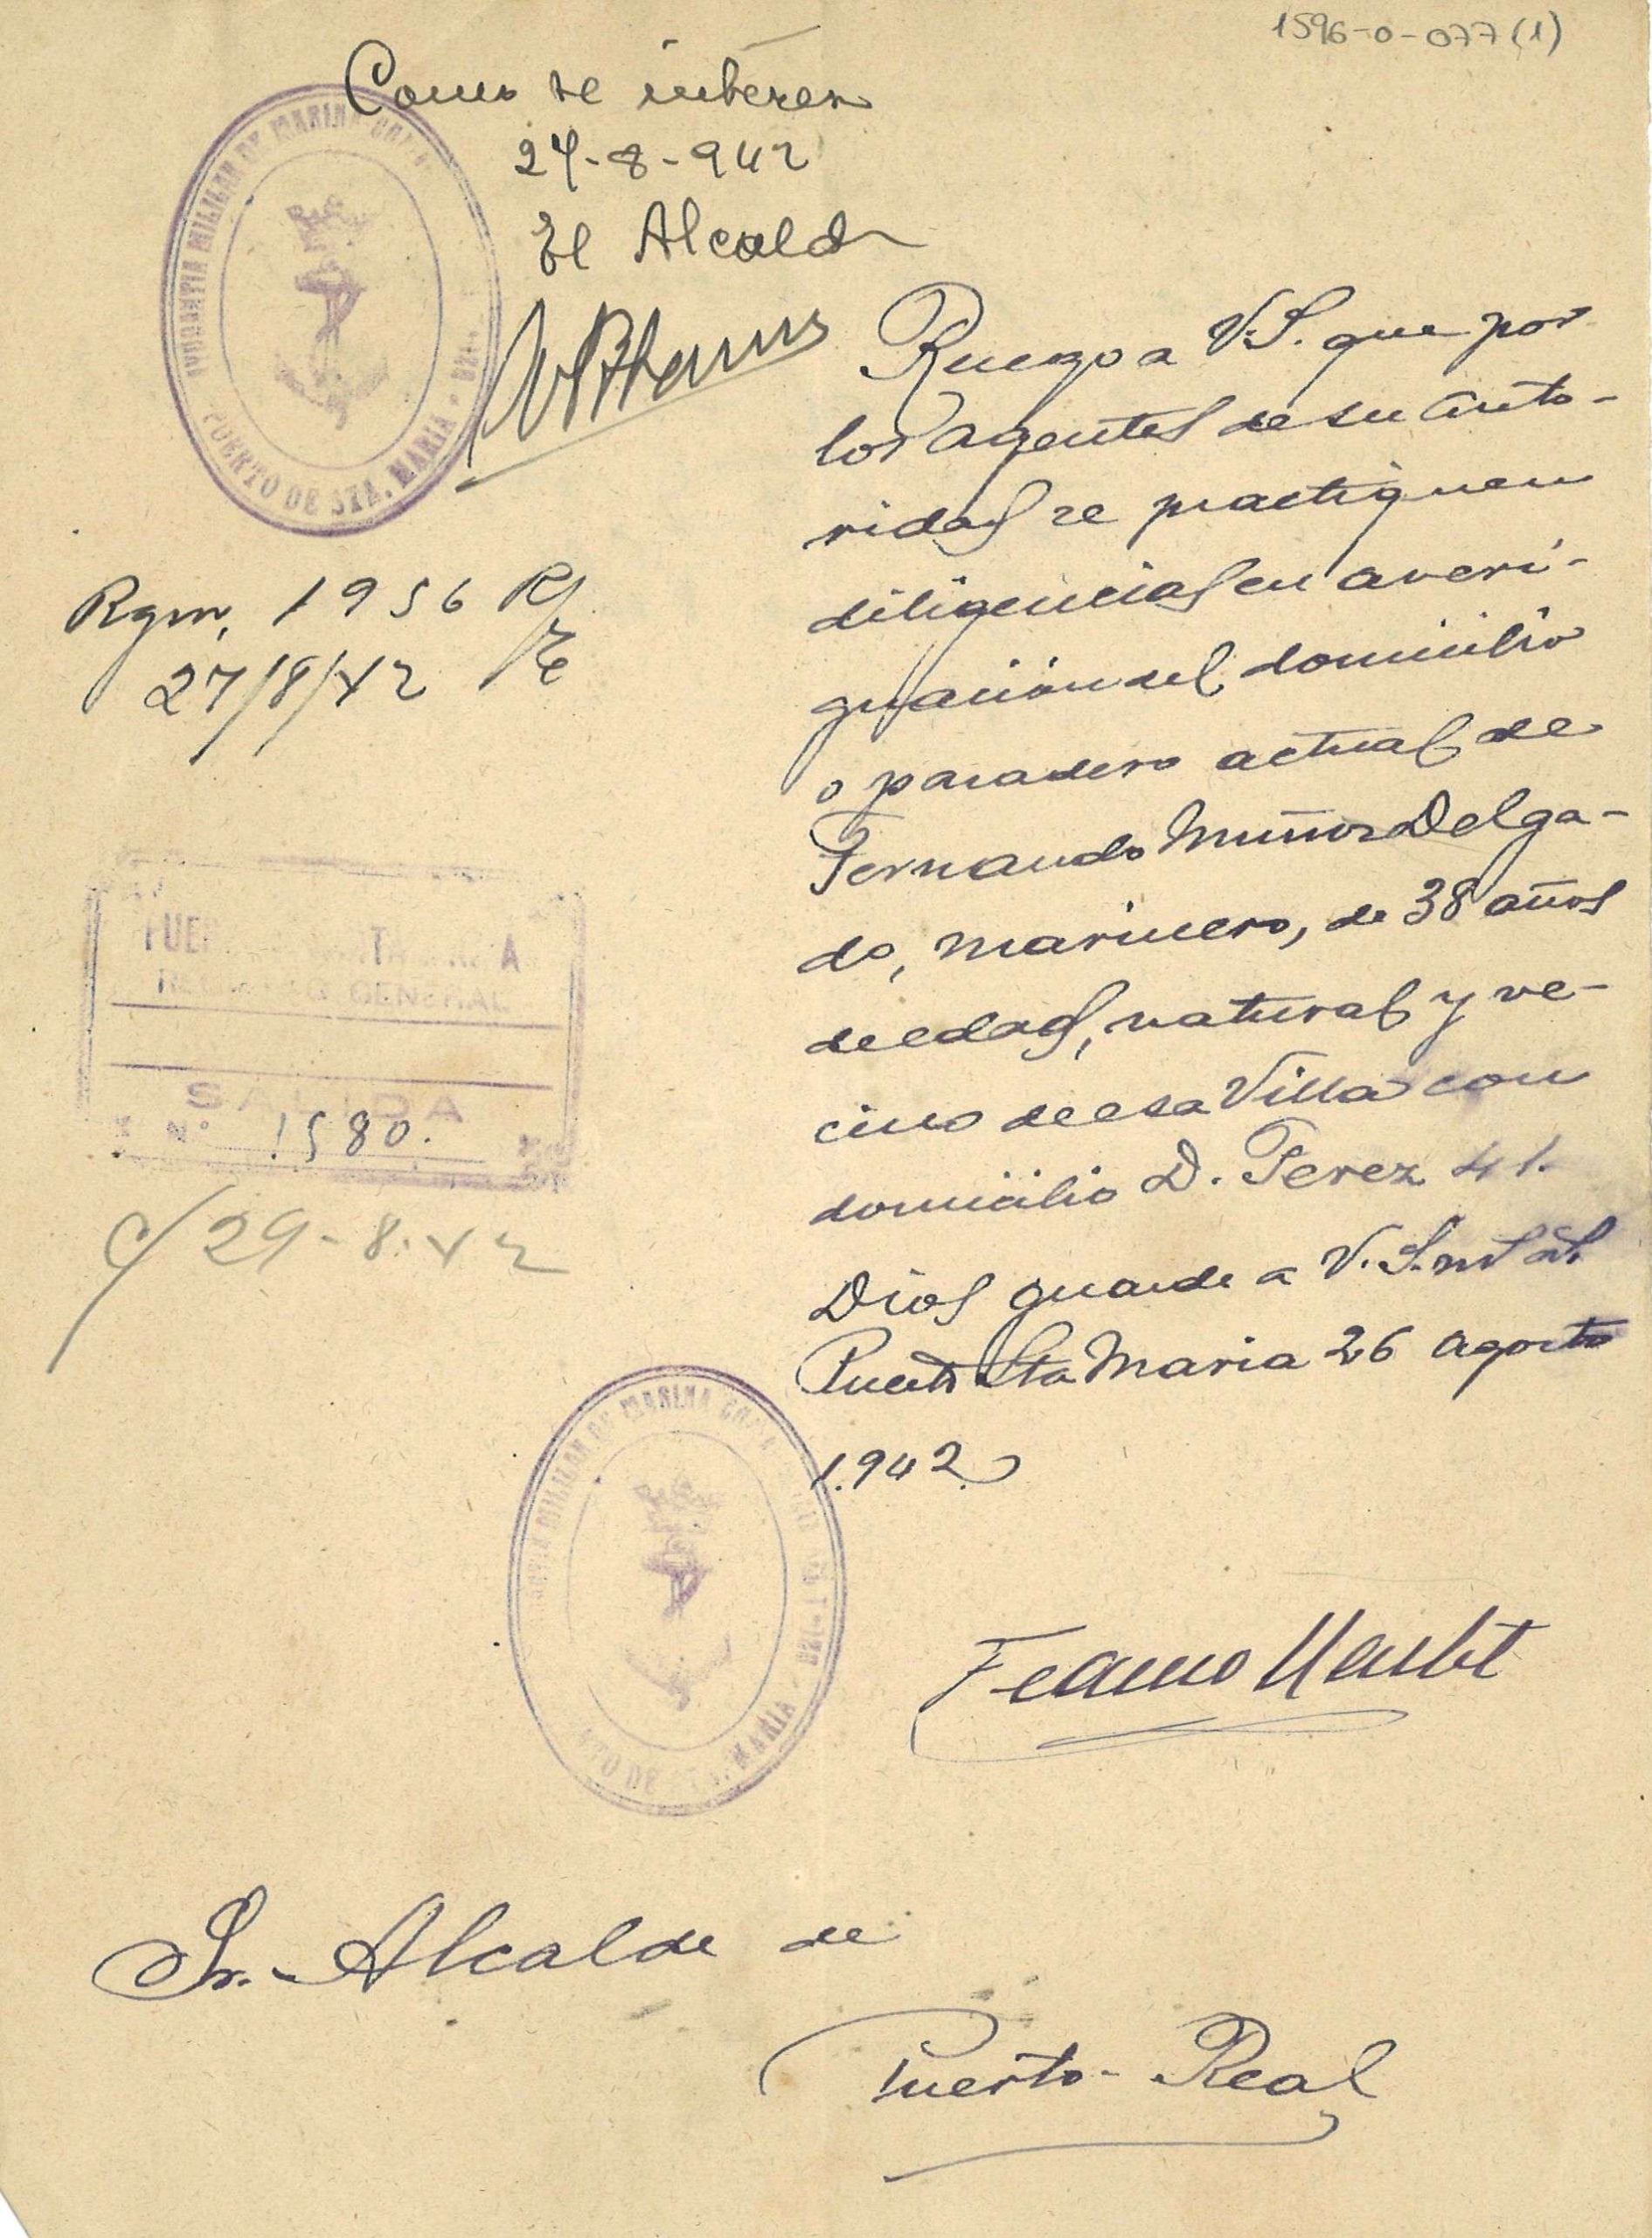 1596-0-077(1)
Como se interesa
27-8-942
El Alcalde
AYUDANTIA MILITAR DE MARINA
PUERTO DE STA. MARIA
Rgm. 1956
27/8/42
REGISTRO GENERAL
SALIDA
Nº 1580.
29-8-42
Ruego a V.S. que por
los agentes de su auto-
ridad se practiquen
diligencias en averi-
guación del domicilio
o paradero actual de
Fernando Muñoz Delga-
do, marinero, de 38 años
de edad, natural y ve-
cino de esa Villa con
domicilio D. Perez 41.
Dios guarde a V.S. ms as
Puerto Sta Maria 26 agosto
1.942.
MILITAR DE MARINA
PTO DE STA. MARIA
Sr. Alcalde de
Puerto-Real